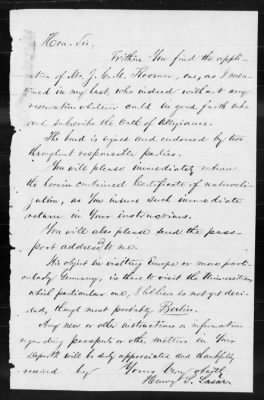 Hon. Sir,
Within You find the appli-
cation of Mr. J. C. M. one, as I men-
tioned in my last, who indeed without any
reservation whatever could in good faith take
and subscribe the Oath of Allegiance.
The bond is signed and endorsed by two
throughout responsible parties.
You will please immediately return
the herein contained Certificate of naturali-
zation, as You insure such immediate
return in Your instructions.
You will also please send the pass-
port addressed to me.
His object in visiting Europe or more parti-
cularly Germany, is there to visit the Universities
which particular one, I believe is not yet deci-
ded, though most probably Berlin.
Any new or other instructions or information
regarding passports or other matters in Your
Dep't will be duly appreciated and thankfully
received by Yours Very obdt.
Henry S. Lasar.